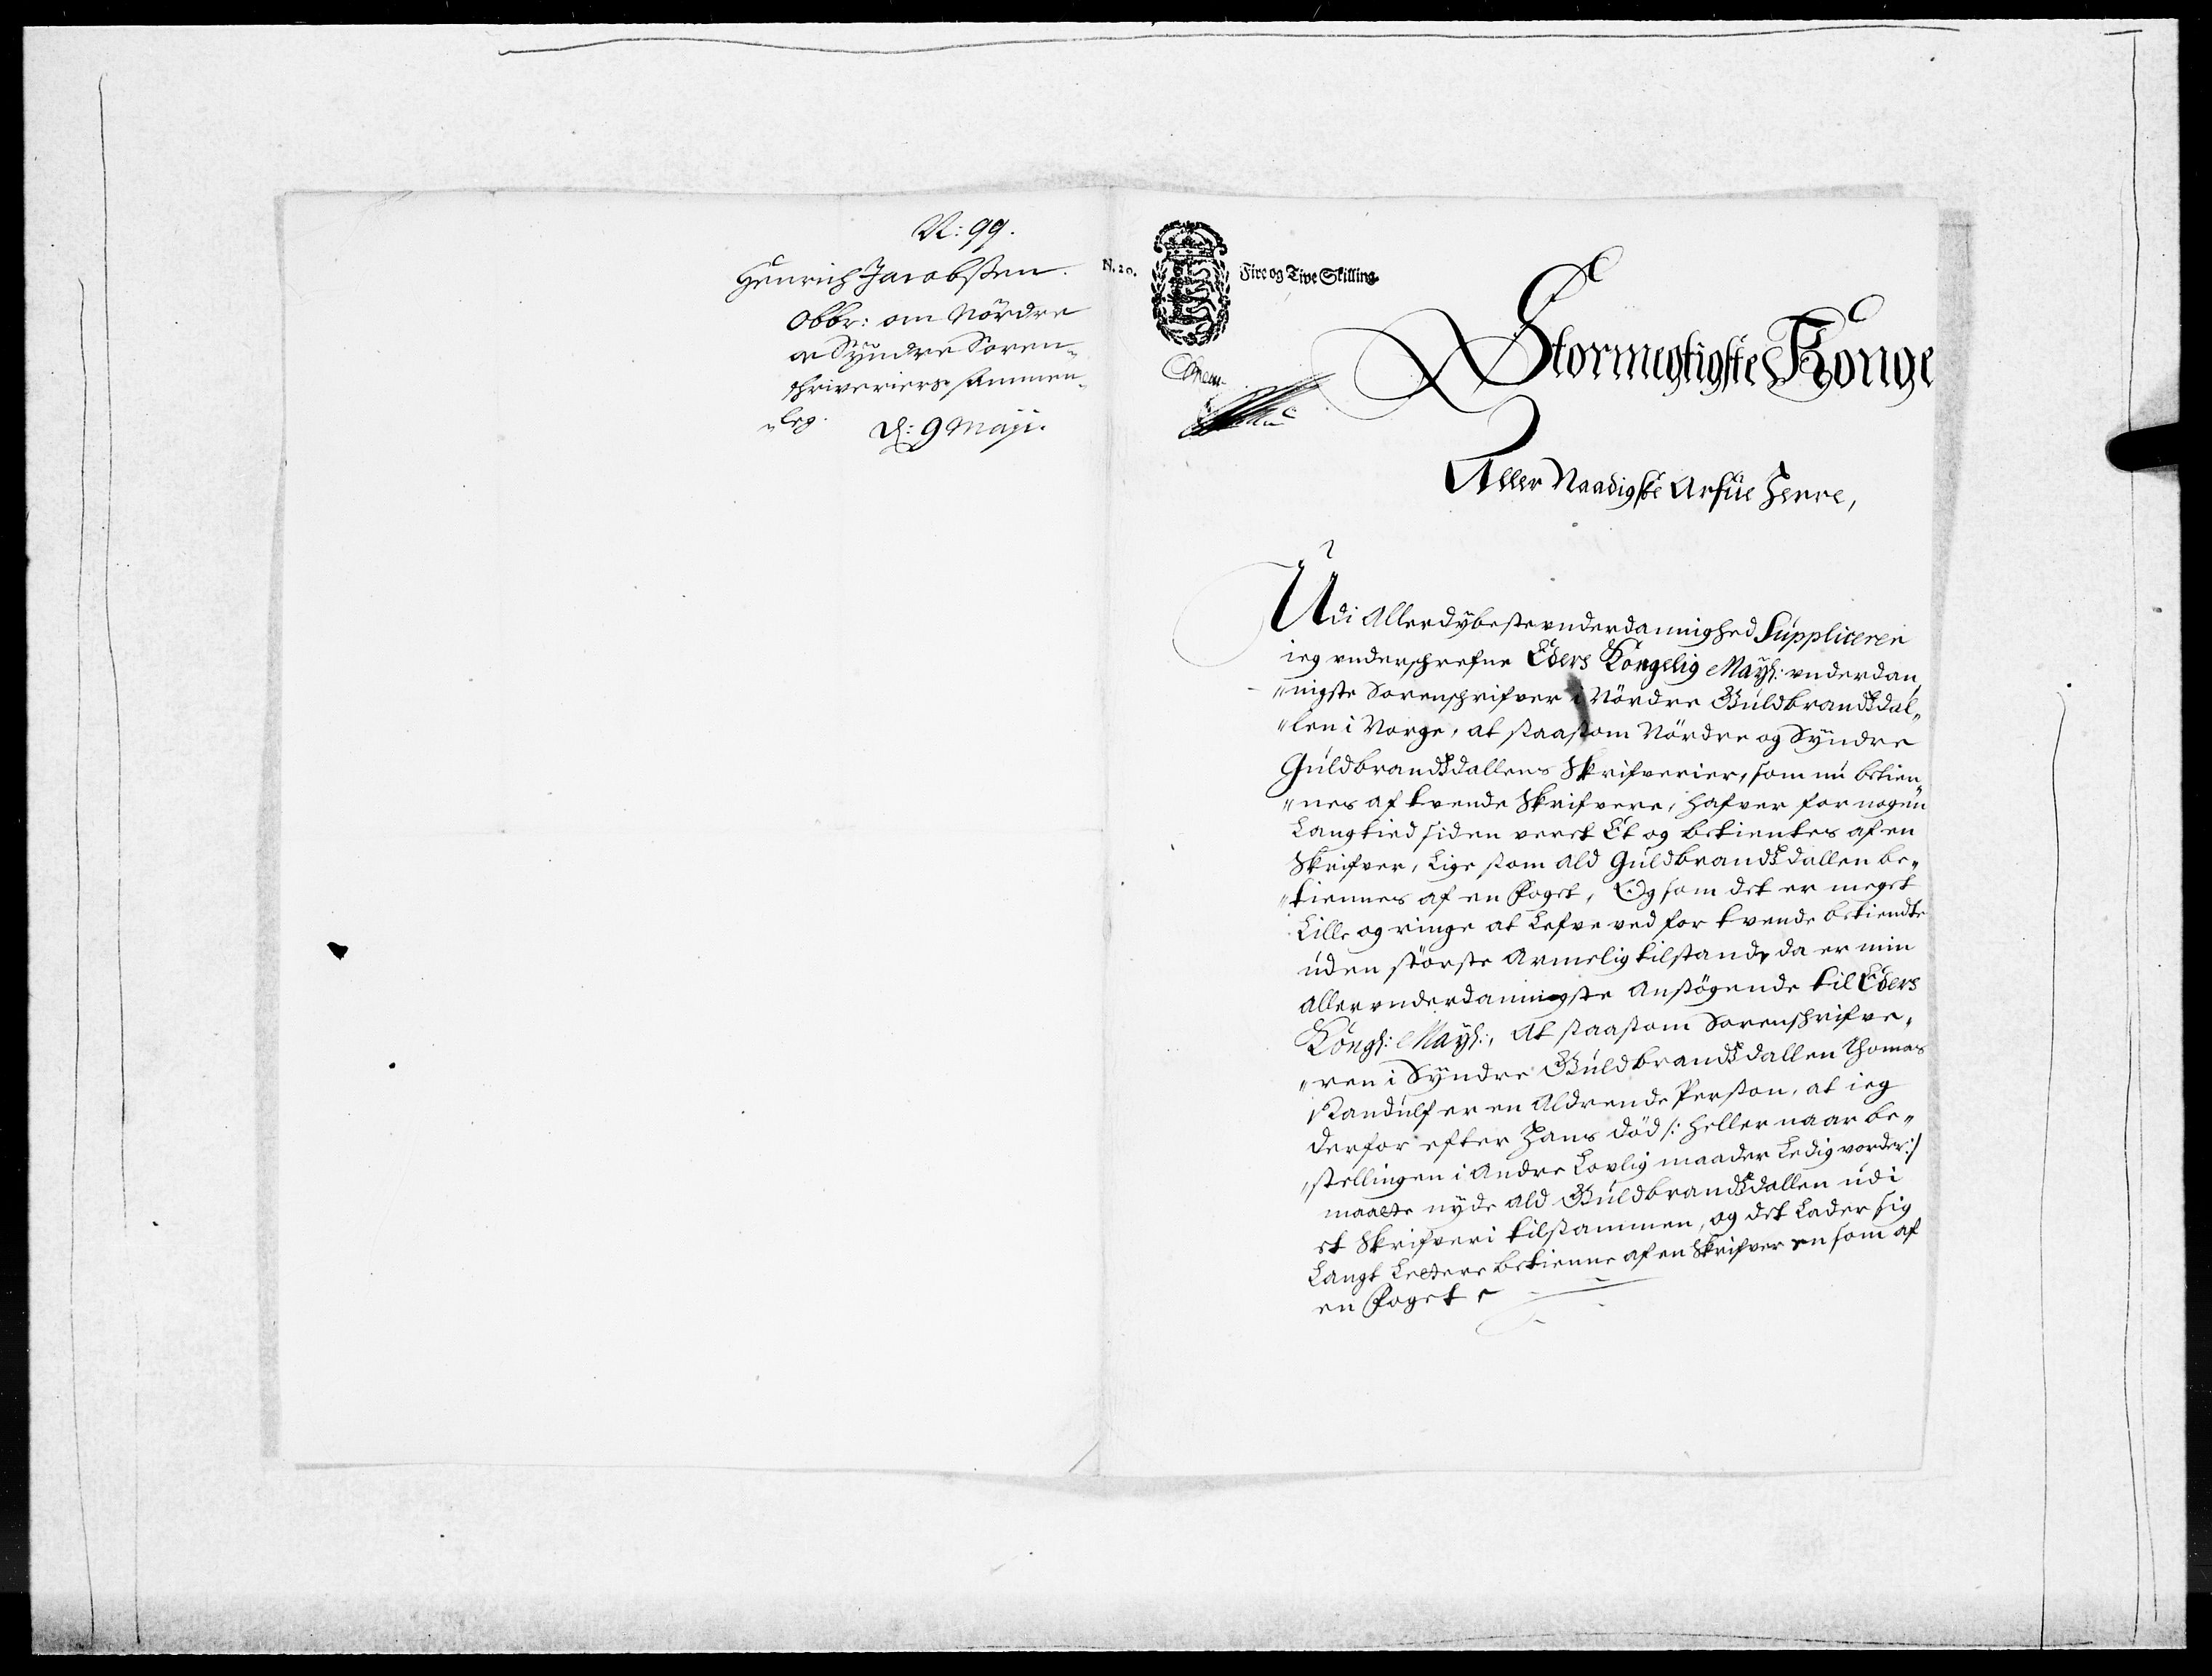 N: 99.
Henrich Jacobssen.
Obbr: om Nördre
oc Syndre Soren¬
schriveriers sammen¬
„leg.
d: 9 Maji.
N. 20.
Fire og Tive Skilling.
Stormegtigste Konge
Aller Naadigste Arfue Herre,
Udi Allerdÿbeste underdannighed Suppliceren
ieg underschrefne Eders Kongelig Mayt: underdan„
„nigste Sorenschrifver i Nördre Guldbrandsdal„
„len i Norge, at saasom Nördre og Sÿndre
Guldbrandsdallens Skrifverier, som nu betien„
„nes af tvende Skrifvere, hafver for nogen
Lang tied siden veret Et og betientes af en
Skrifver, Lige som ald Guldbrandsdallen be„
„tiennes af en Foget, Og som det er meget
Lille og ringe at Lefve ved for tvende betiendte
uden störste Armelig tilstand, da er min
allerunderdannigste Ansögende til Eders
Kongl: Mayt:, At saasom Sorenschrifve„
„ren i Sÿndre Guldbrandsdallen Thomas
Randulf er en Aldrende Person, at ieg
derfor efter Hans död /: heller naar be„
„stellingen i Andre Lovlig maader Ledig vorder:/
maatte nÿde ald Guldbrandsdallen udi
et Skrifveri tilsammen, og det Lader sig
Langt Lettere betienne af en Skrifver en som af
en Foget